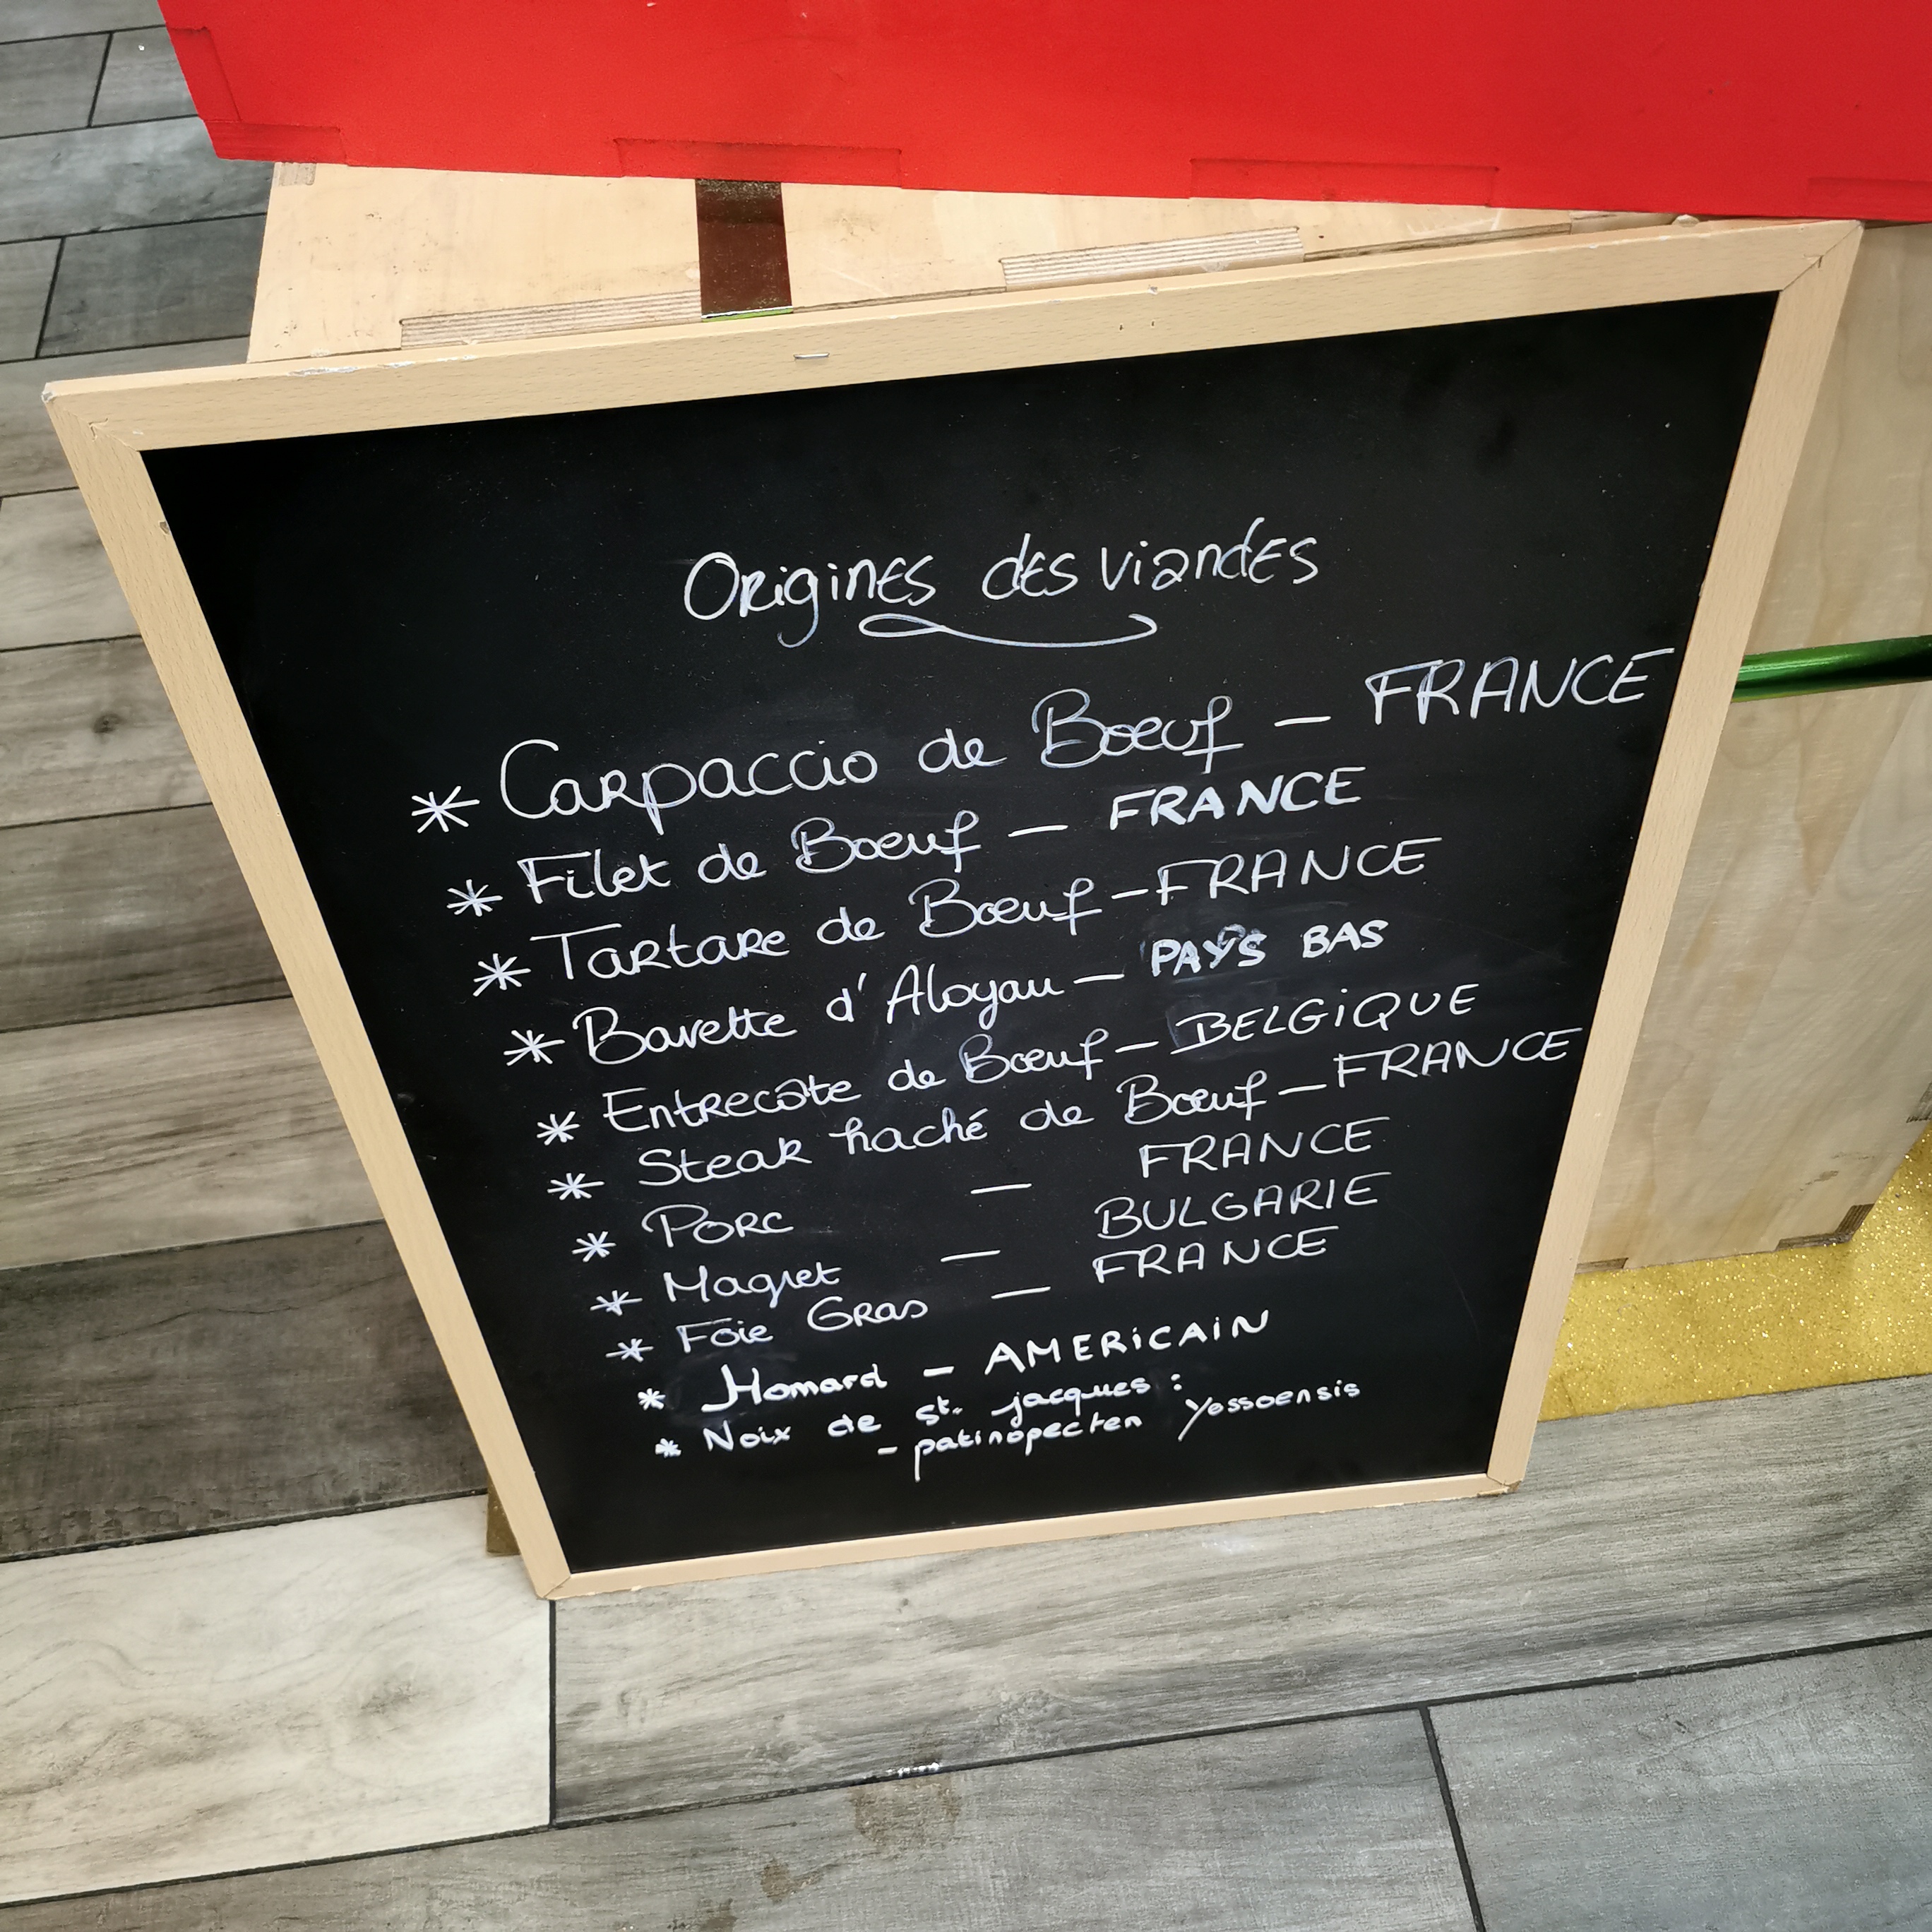 Origines des viandes
* Carpaccio de Boeuf – FRANCE
* Filet de Boeuf – FRANCE
* Tartare de Boeuf – FRANCE
* Bavette d'Aloyau – PAYS BAS
* Entrecôte de Boeuf – BELGIQUE
* Steak haché de Boeuf – FRANCE
* Porc – FRANCE
* Magret – BULGARIE
* Foie Gras – FRANCE
* Homard – AMERICAIN
* Noix de st. jacques :
- patinopecten yessoensis